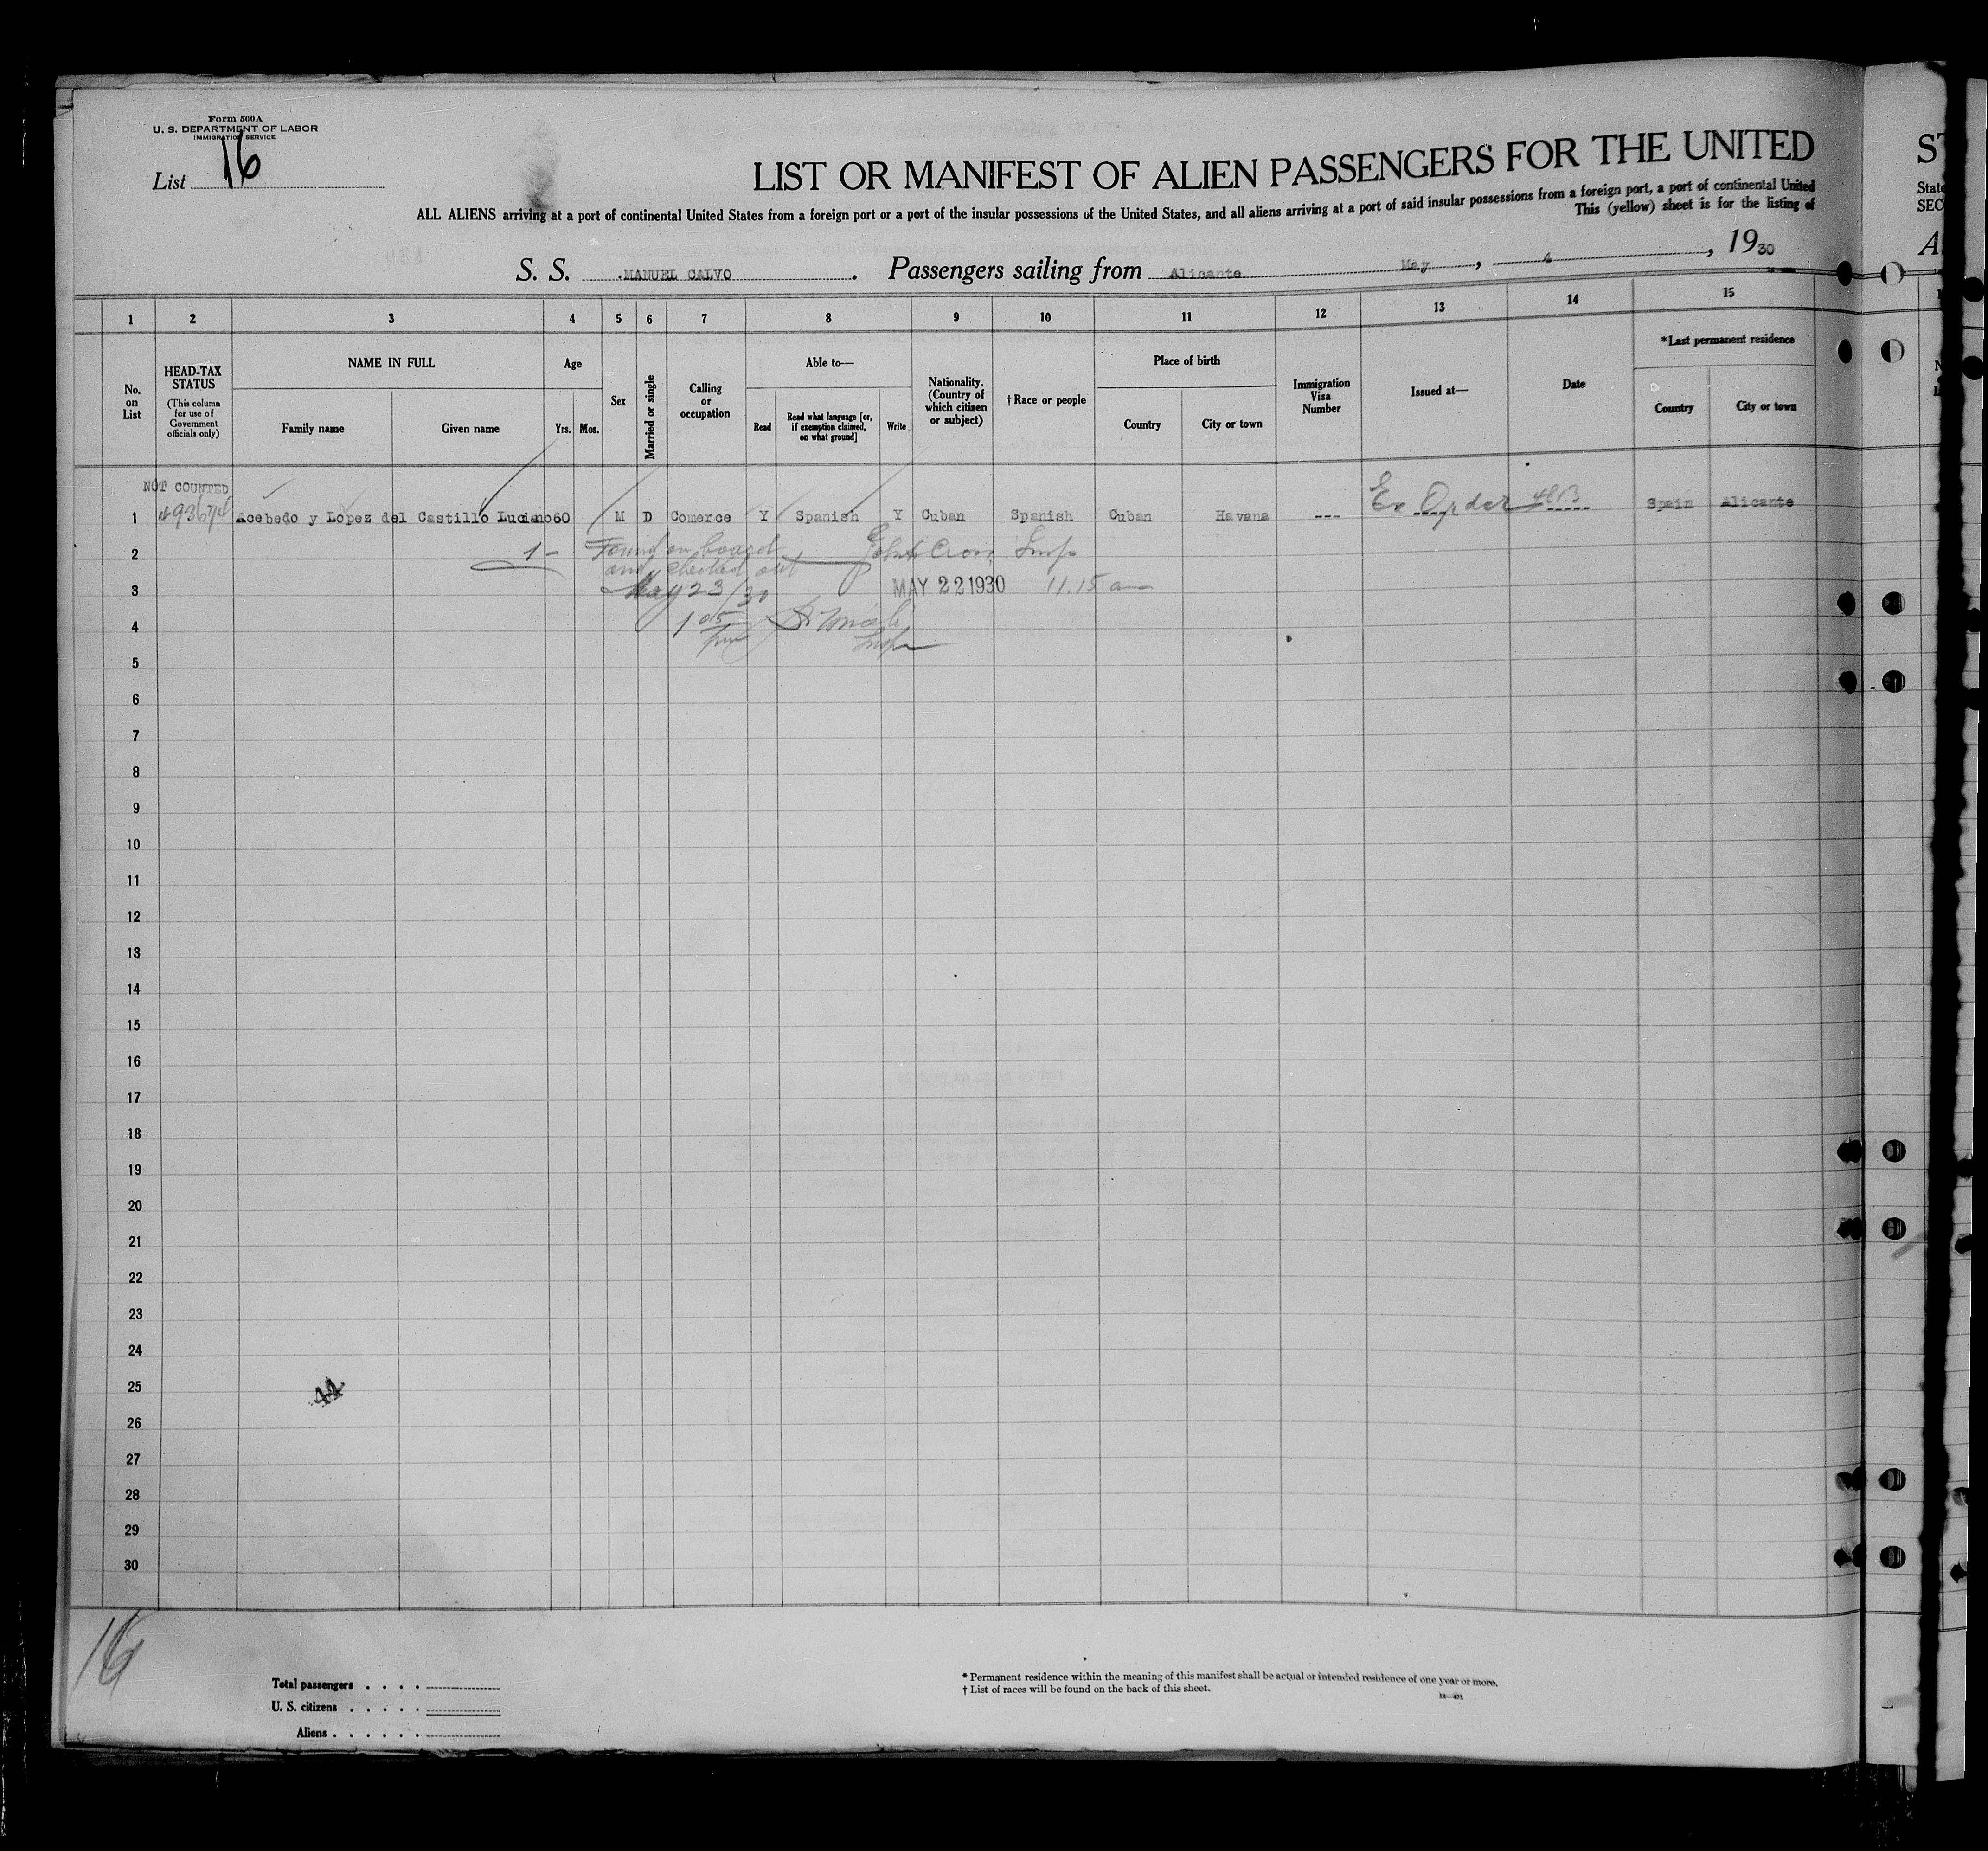 Form 500A
U. S. DEPARTMENT OF LABOR
IMMIGRATION SERVICE
List 16
LIST OR MANIFEST OF ALIEN PASSENGERS FOR THE UNITED
ALL ALIENS arriving at a port of continental United States from a foreign port or a port of the insular possessions of the United States, and all aliens arriving at a port of said insular possessions from a foreign port, a port of continental United
This (yellow) sheet is for the listing of
S. S. MANUEL CALVO. Passengers sailing from Alicante May, 4, 1930
1 2 3 4 5 6 7 8 9 10 11 12 13 14 15
No. on List
HEAD-TAX STATUS
(This column for use of Government officials only)
NAME IN FULL
Family name
Given name
Age
Yrs. Mos.
Sex
Married or single
Calling or occupation
Able to—
Read
Read what language [or, if exemption claimed, on what ground]
Write
Nationality. (Country of which citizen or subject)
†Race or people
Place of birth
Country
City or town
Immigration Visa Number
Issued at—
Date
*Last permanent residence
Country
City or town
NOT COUNTED
1 Acebedo y Lopez del Castillo Luciano 60 M D Comerce Y Spanish Y Cuban Spanish Cuban Havana --- Ex Order 4813 Spain Alicante
2 1- Found on board Insp
and checked out
3 May 23/30 MAY 22 1930 11.15 a
4 1 05 pm
Insp
5
6
7
8
9
10
11
12
13
14
15
16
17
18
19
20
21
22
23
24
25 44
26
27
28
29
30
16
Total passengers
U. S. citizens
Aliens
* Permanent residence within the meaning of this manifest shall be actual or intended residence of one year or more.
† List of races will be found on the back of this sheet.